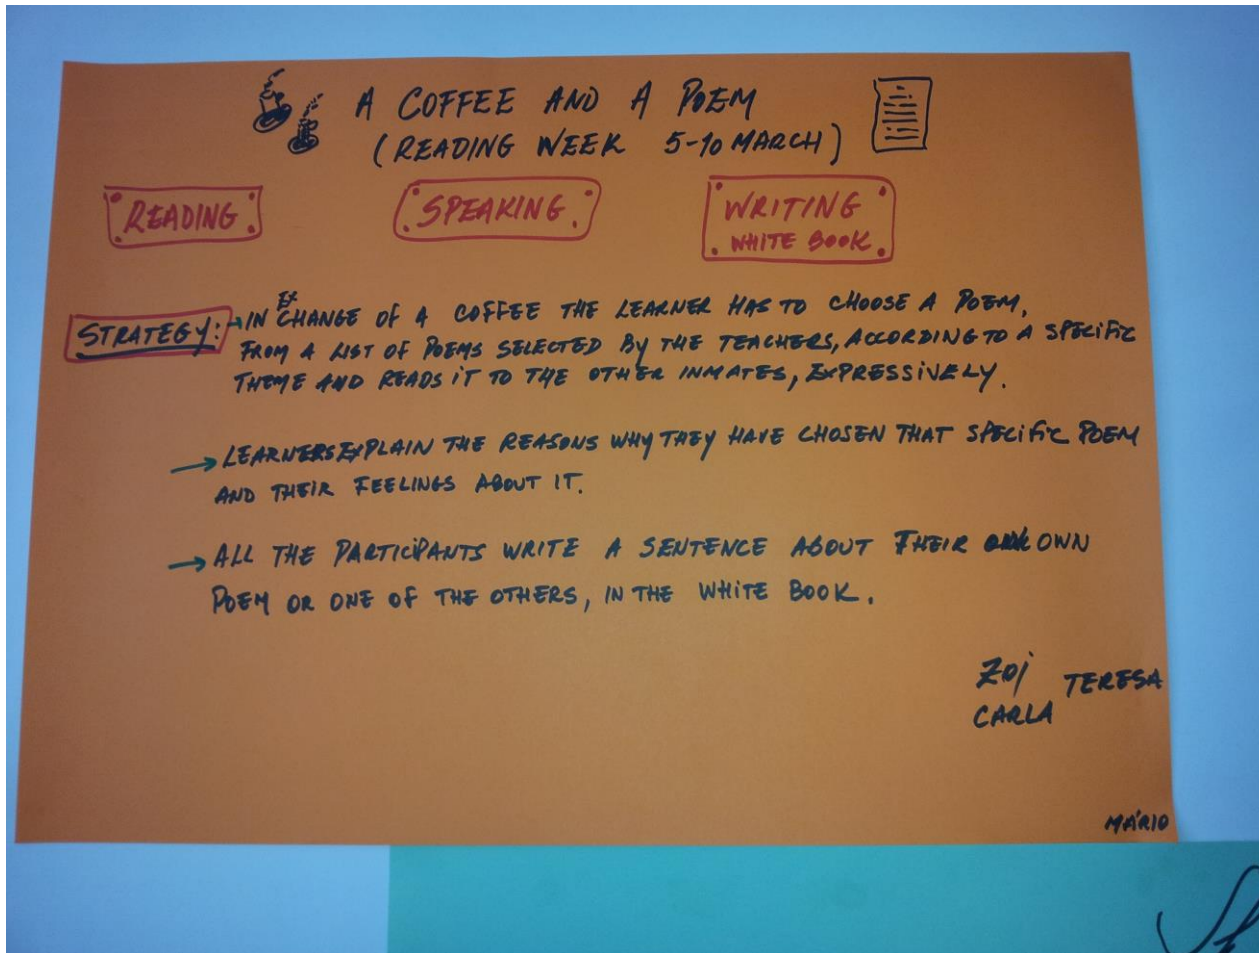 A COFFEE AND A POEM
(READING WEEK 5-10 MARCH)
READING
SPEAKING
WRITING
WHITE BOOK
STRATEGY: → IN EXCHANGE OF A COFFEE THE LEARNER HAS TO CHOOSE A POEM,
FROM A LIST OF POEMS SELECTED BY THE TEACHERS, ACCORDING TO A SPECIFIC
THEME AND READS IT TO THE OTHER INMATES, EXPRESSIVELY.
→ LEARNERS EXPLAIN THE REASONS WHY THEY HAVE CHOSEN THAT SPECIFIC POEM
AND THEIR FEELINGS ABOUT IT.
→ ALL THE PARTICIPANTS WRITE A SENTENCE ABOUT THEIR OWN
POEM OR ONE OF THE OTHERS, IN THE WHITE BOOK.
TERESA
CARLA
MÁRIO